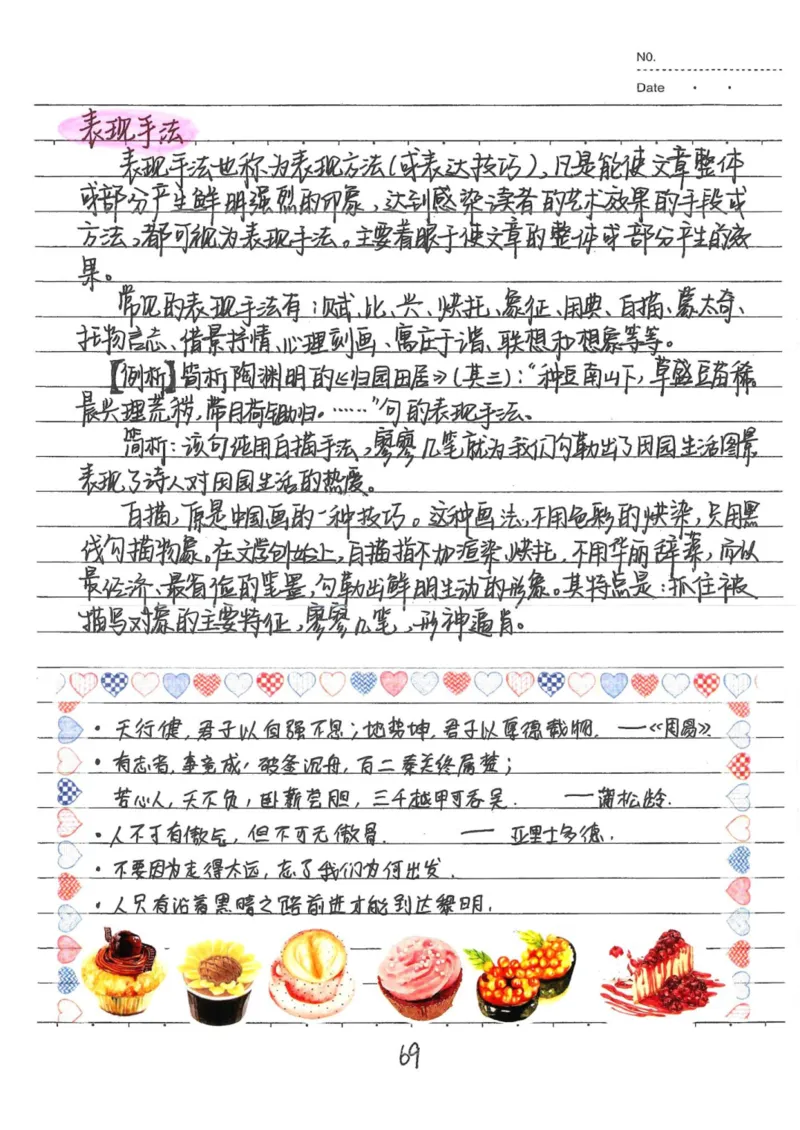 NO.
Date
表现手法
表现手法也称为表现方法(或表达技巧),凡是能使文章整体
或部分产生鲜明强烈的印象,达到感染读者的艺术效果的手段或
方法,都可视为表现手法。主要着眼于使文章的整体或部分产生的效
果。
常见的表现手法有:赋、比、兴、烘托、象征、用典、白描、蒙太奇、
托物言志、借景抒情、心理刻画、寓庄于谐、联想和想象等等。
【例析】简析陶渊明的《归园田居》(其三):“种豆南山下,草盛豆苗稀。
晨兴理荒秽,带月荷锄归。……”句的表现手法、
简析:该句纯用白描手法,寥寥几笔就为我们勾勒出了田园生活图景
表现了诗人对田园生活的热爱。
白描,原是中国画的一种技巧。这种画法,不用色彩的烘染,只用黑
线勾描物象。在文学创作上,白描指不加渲染、烘托,不用华丽辞藻,而以
最经济、最省俭的笔墨,勾勒出鲜明生动的形象。其特点是:抓住被
描写对象的主要特征,寥寥几笔,形神逼肖。
· 天行健,君子以自强不息;地势坤,君子以厚德载物. ——《周易》
· 有志者,事竟成,破釜沉舟,百二秦关终属楚;
苦心人,天不负,卧薪尝胆,三千越甲可吞吴. ——蒲松龄.
· 人不可有傲气,但不可无傲骨. —— 亚里士多德.
· 不要因为走得太远,忘了我们为何出发.
· 人只有沿着黑暗之路前进才能到达黎明.
69